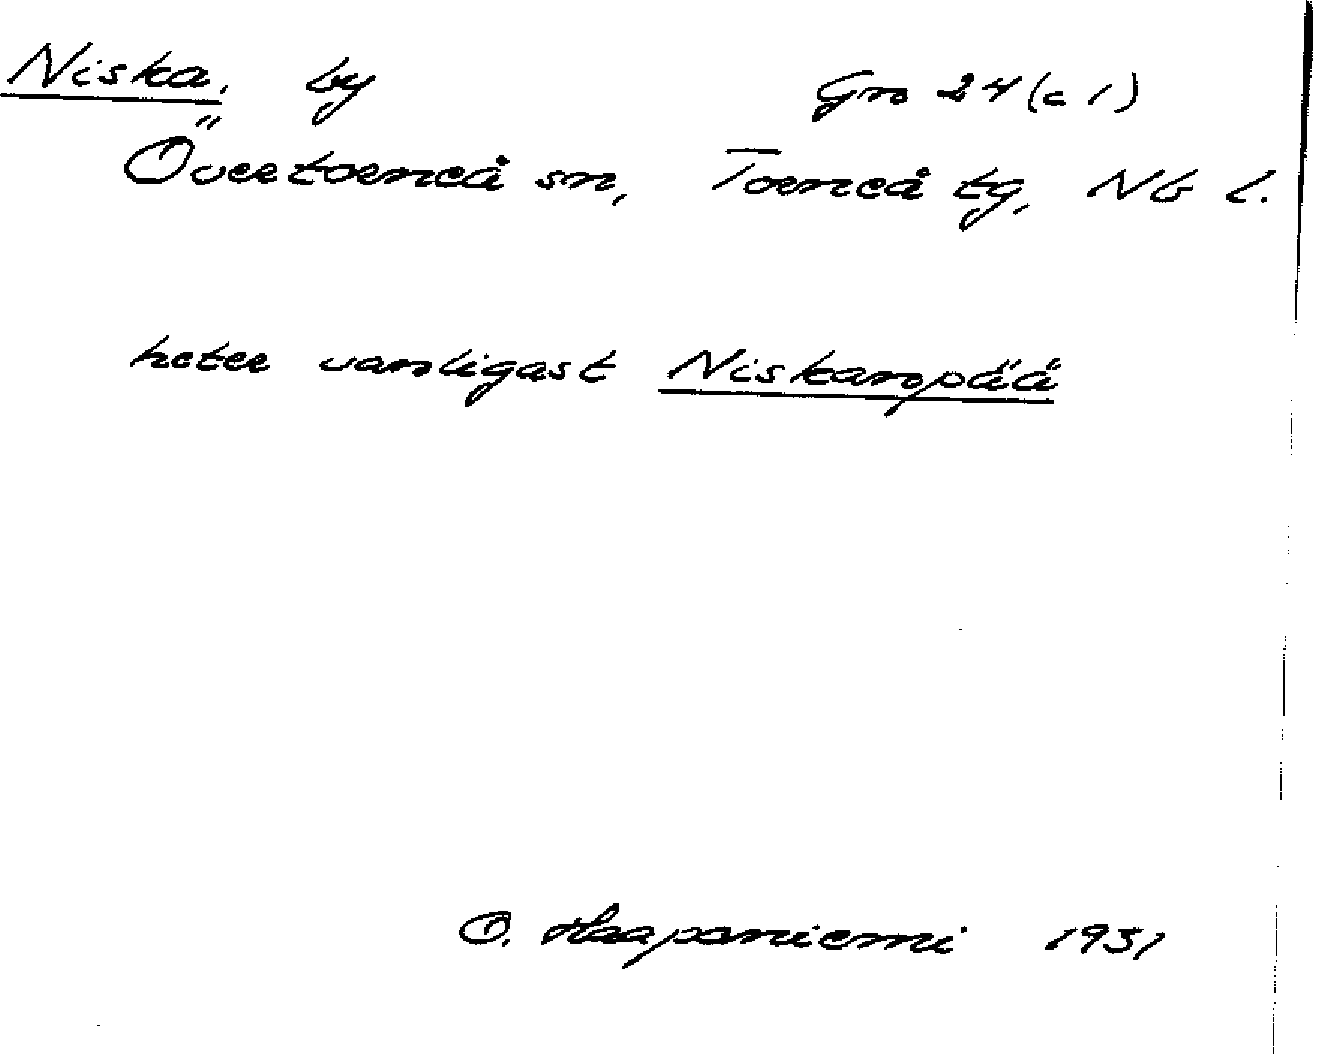 Niska, by Gm 24 (c 1)
Övertorneå sn, Torneå tg, Nb l.
heter vanligast Niskanpää
O. Haapaniemi 1931